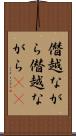 僭越なが
ら僭越な
がら